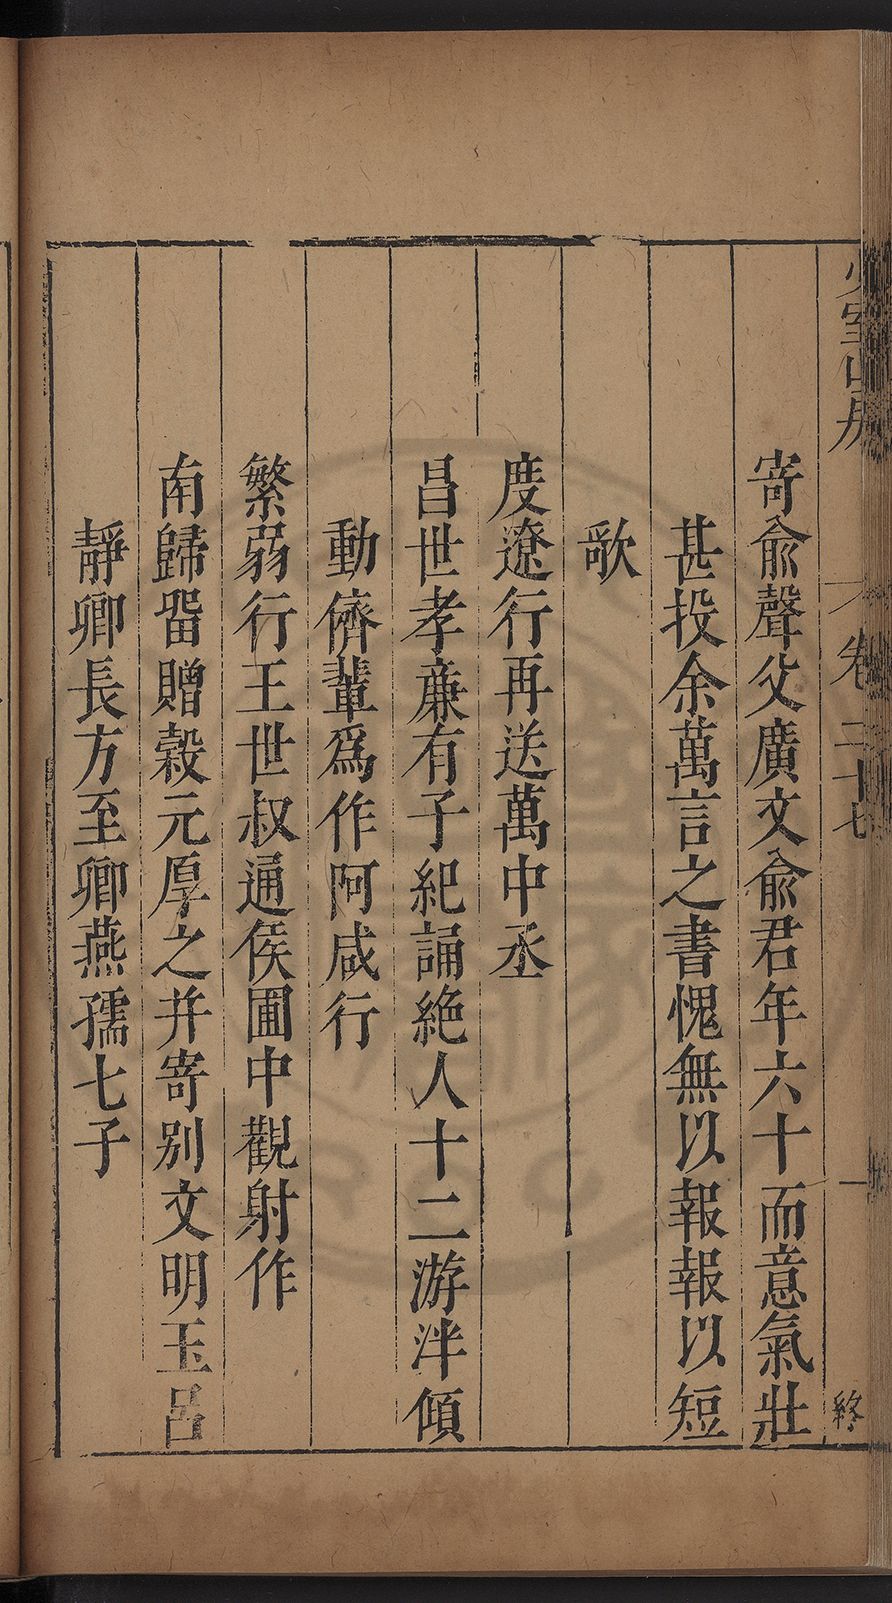 少室山房 卷二十七 一 終
寄兪聲父廣文兪君年六十而意氣壯
甚投余萬言之書愧無以報報以短
歌
度遼行再送萬中丞
昌世孝廉有子紀誦絶人十二游泮傾
動儕輩爲作阿咸行
繁弱行王世叔通侯圃中觀射作
南歸畱贈榖元厚之并寄别文明玉呂
靜卿長方至卿燕孺七子